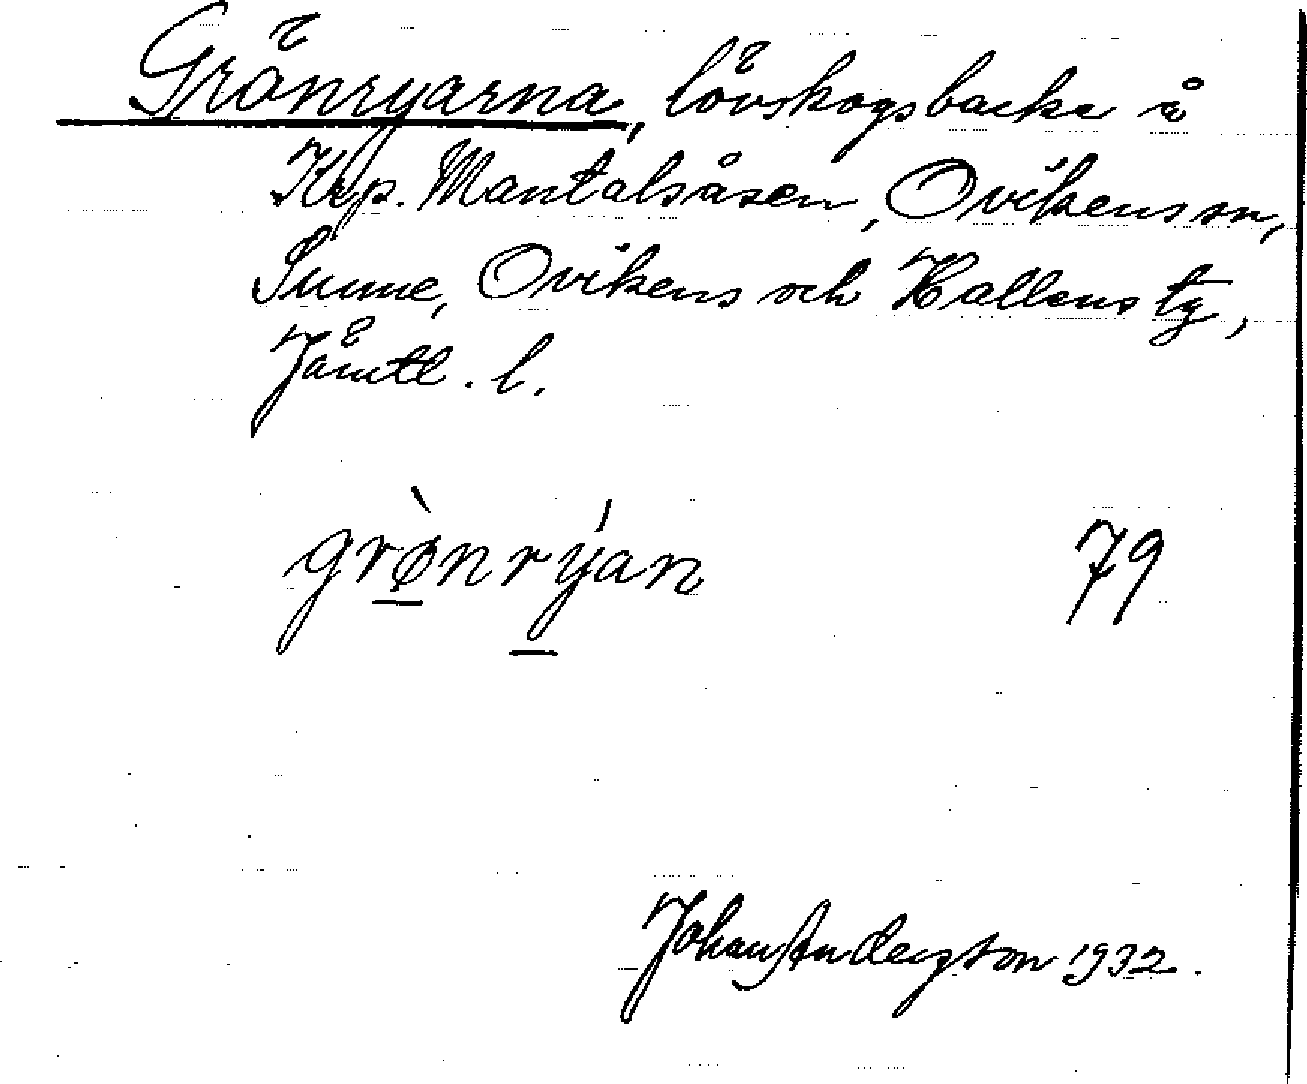 Grönryarna, lövskogsbacke å
Krp. Mantalsåsen, Ovikens sn,
Sunne, Ovikens och Hallens tg,
Jämtl. l.
grø̀nrýan 79
Johan Anderzson 1932.